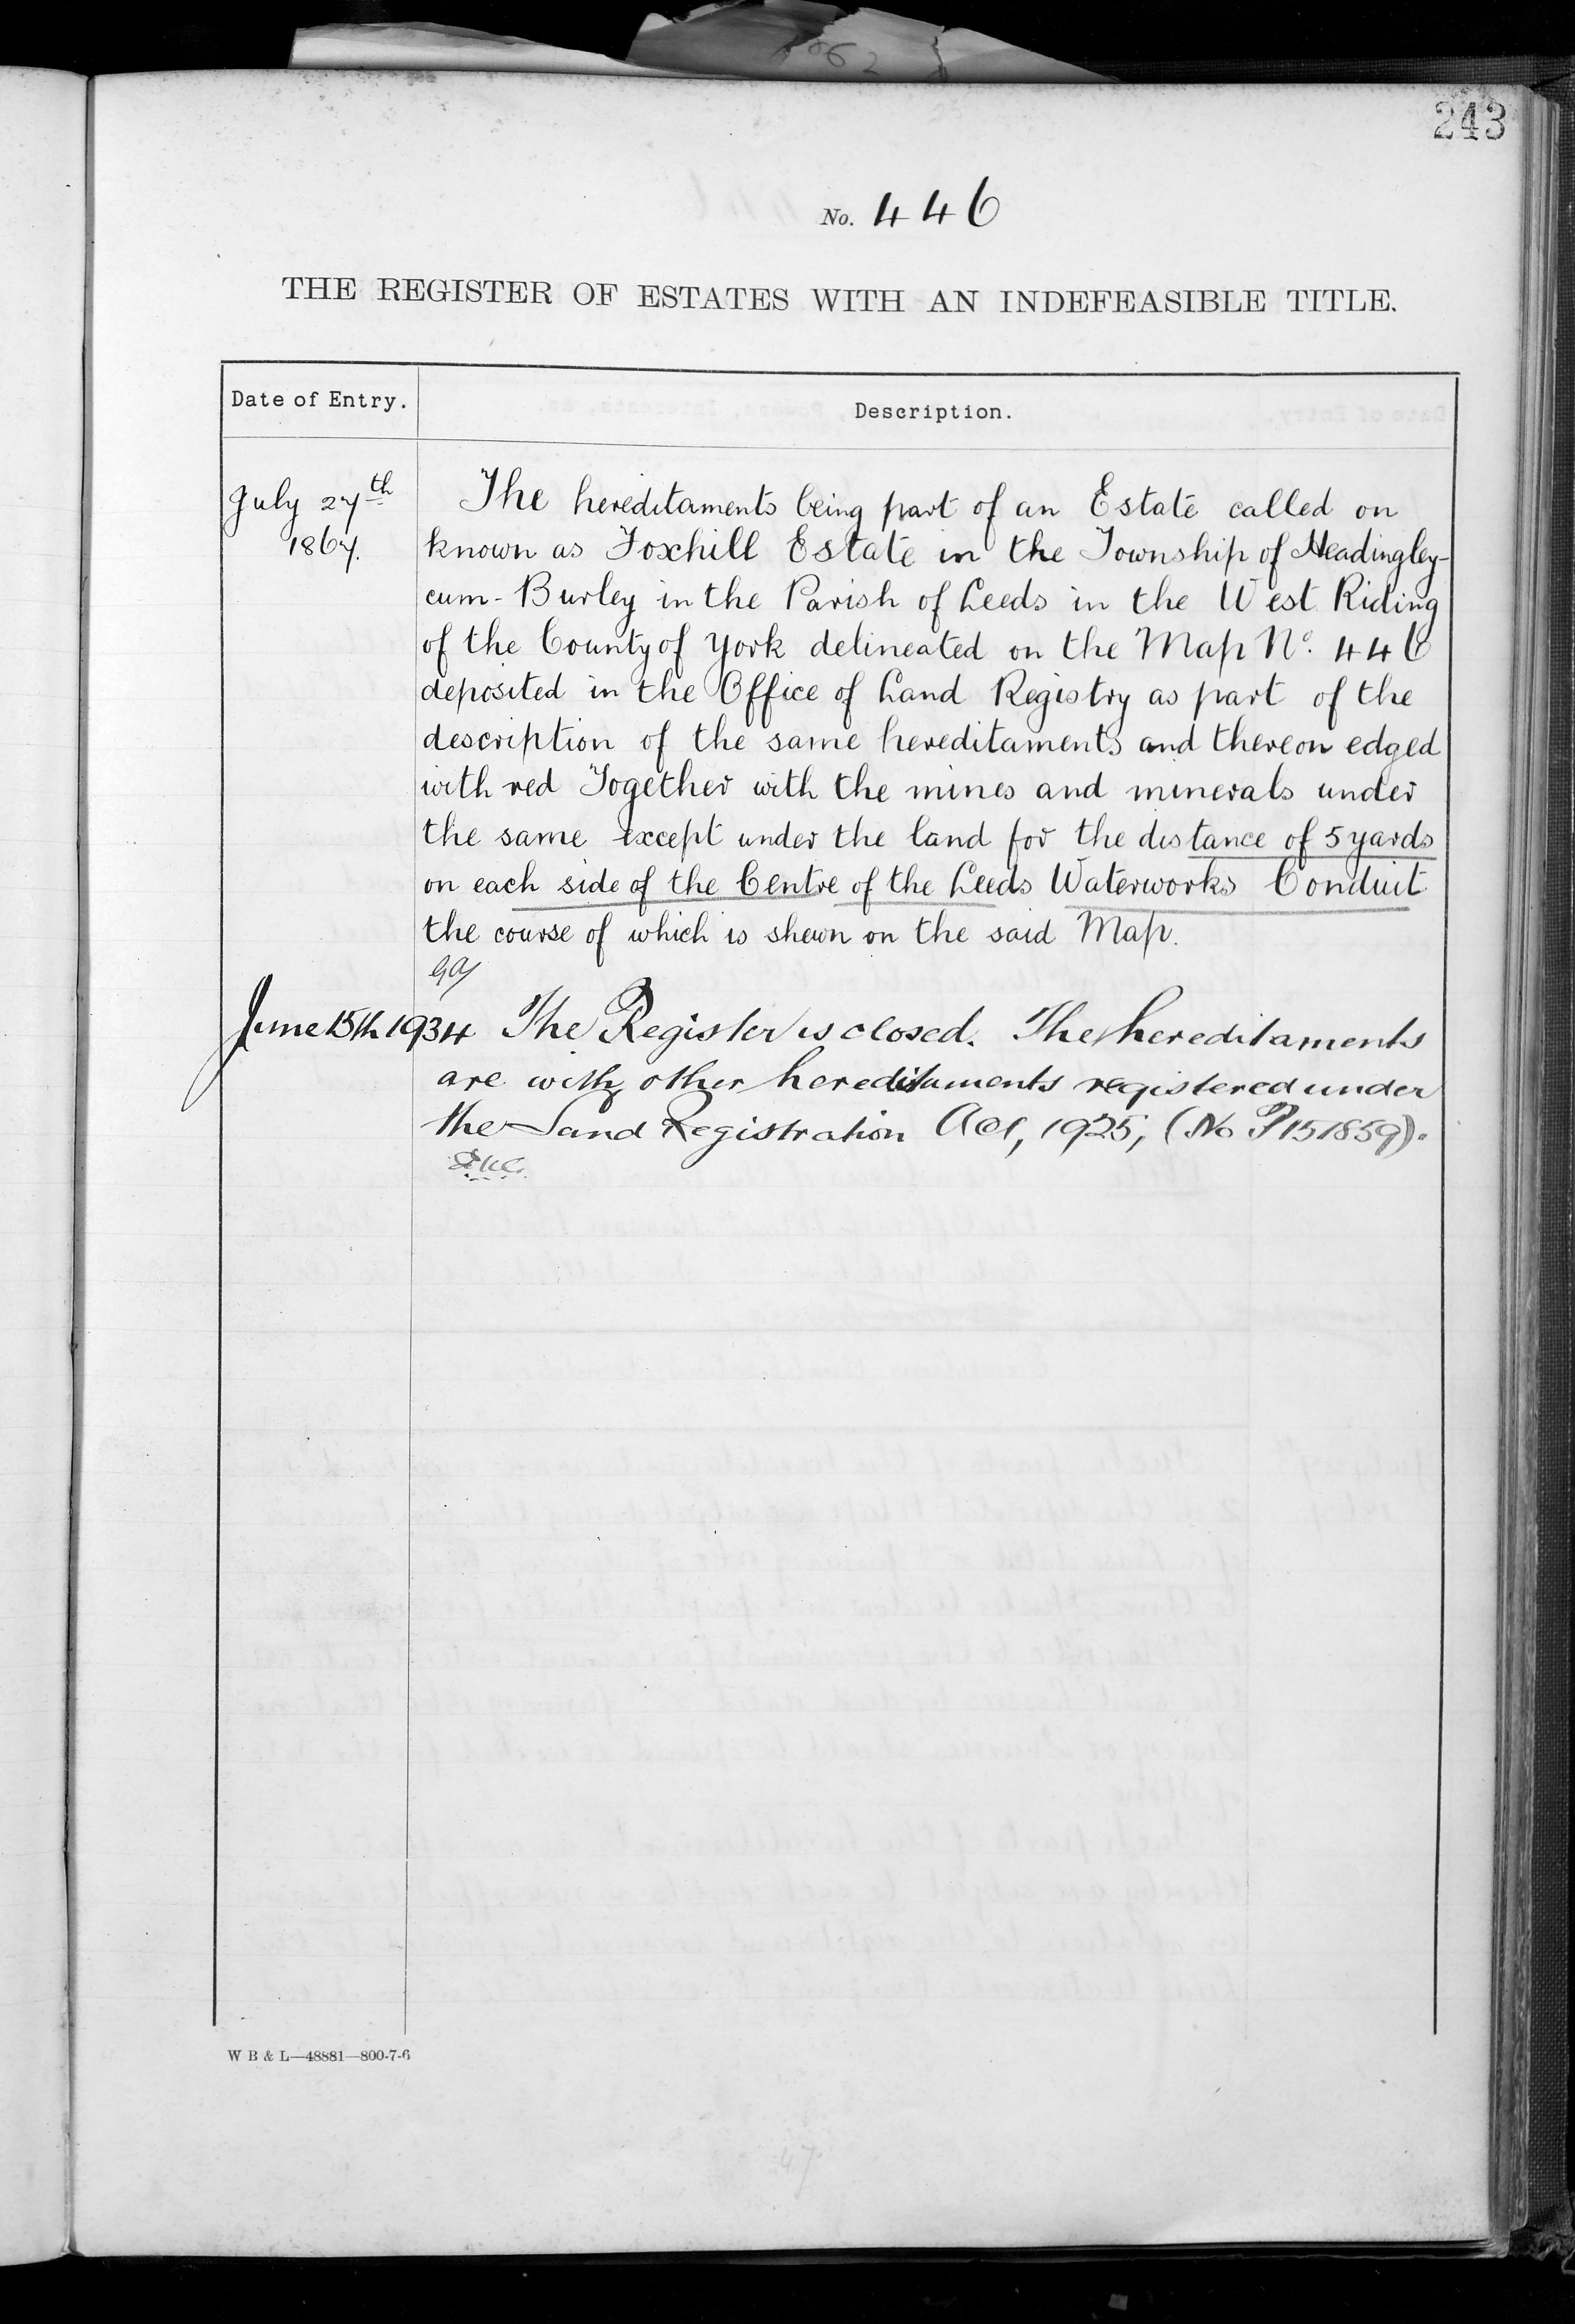 243
No. 446
THE REGISTER OF ESTATES WITH AN INDEFEASIBLE TITLE.
Date of Entry. Description.
July 27th The hereditaments being part of an Estate called on
1867. known as Foxhill Estate in the Township of Headingley-
cum-Burley in the Parish of Leeds in the West Riding
of the County of York delineated on the Map No. 446
deposited in the Office of Land Registry as part of the
description of the same hereditaments and thereon edged
with red Together with the mines and minerals under
the same except under the land for the distance of 5 yards
on each side of the Centre of the Leeds Waterworks Conduit
the course of which is shewn on the said Map.
June 15th 1934 The Register is closed. The hereditaments
are with other hereditaments registered under
the Land Registration Act, 1925, (No P151859).
W B & L—48881—800-7-6